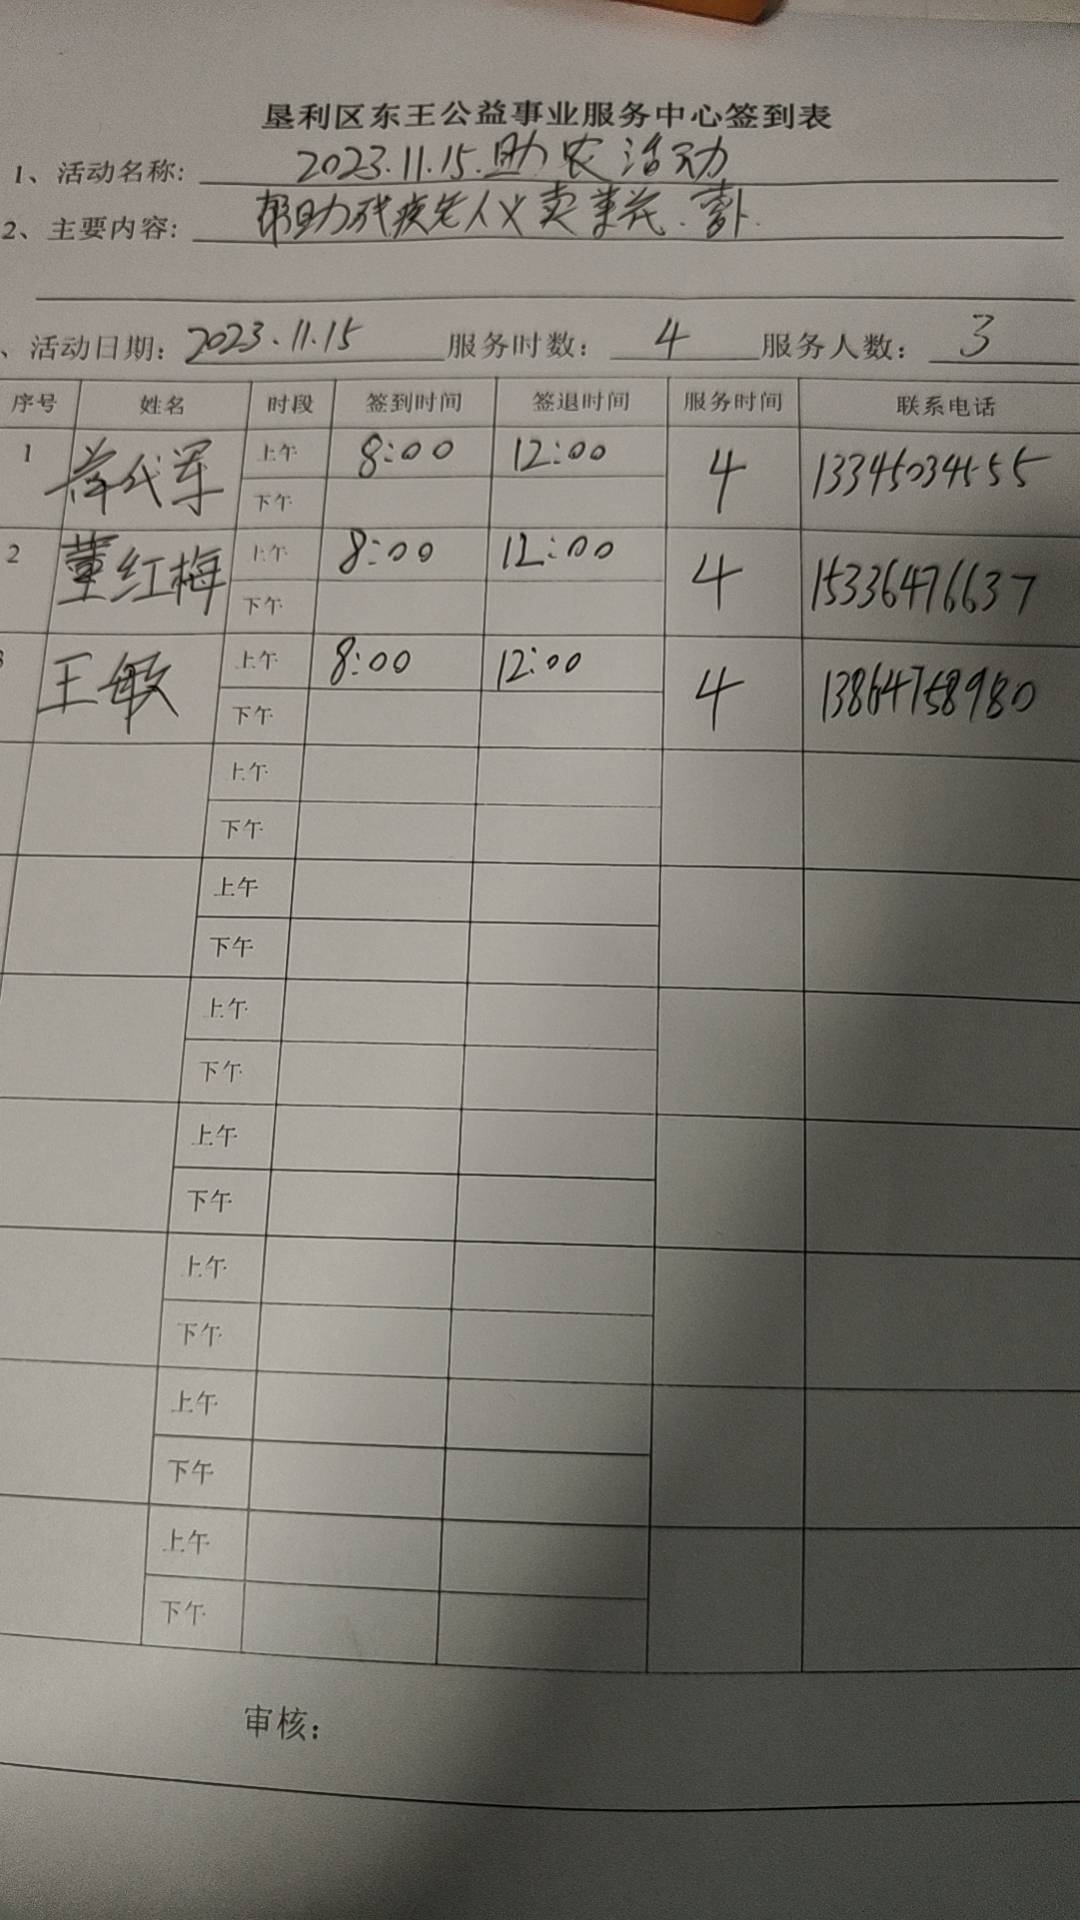 垦利区东王公益事业服务中心签到表
1、活动名称: 2023.11.15.助农活动
2、主要内容: 帮助残疾老人义卖菜花.萝卜.
、活动日期: 2023.11.15 服务时数: 4 服务人数: 3
序号 姓名 时段 签到时间 签退时间 服务时间 联系电话
1 代军 上午 8:00 12:00 4 13345034555
下午
2 董红梅 上午 8:00 12:00 4 15336476637
下午
王敏 上午 8:00 12:00 4 13864758980
下午
上午
下午
上午
下午
上午
下午
上午
下午
上午
下午
上午
下午
上午
下午
审核: